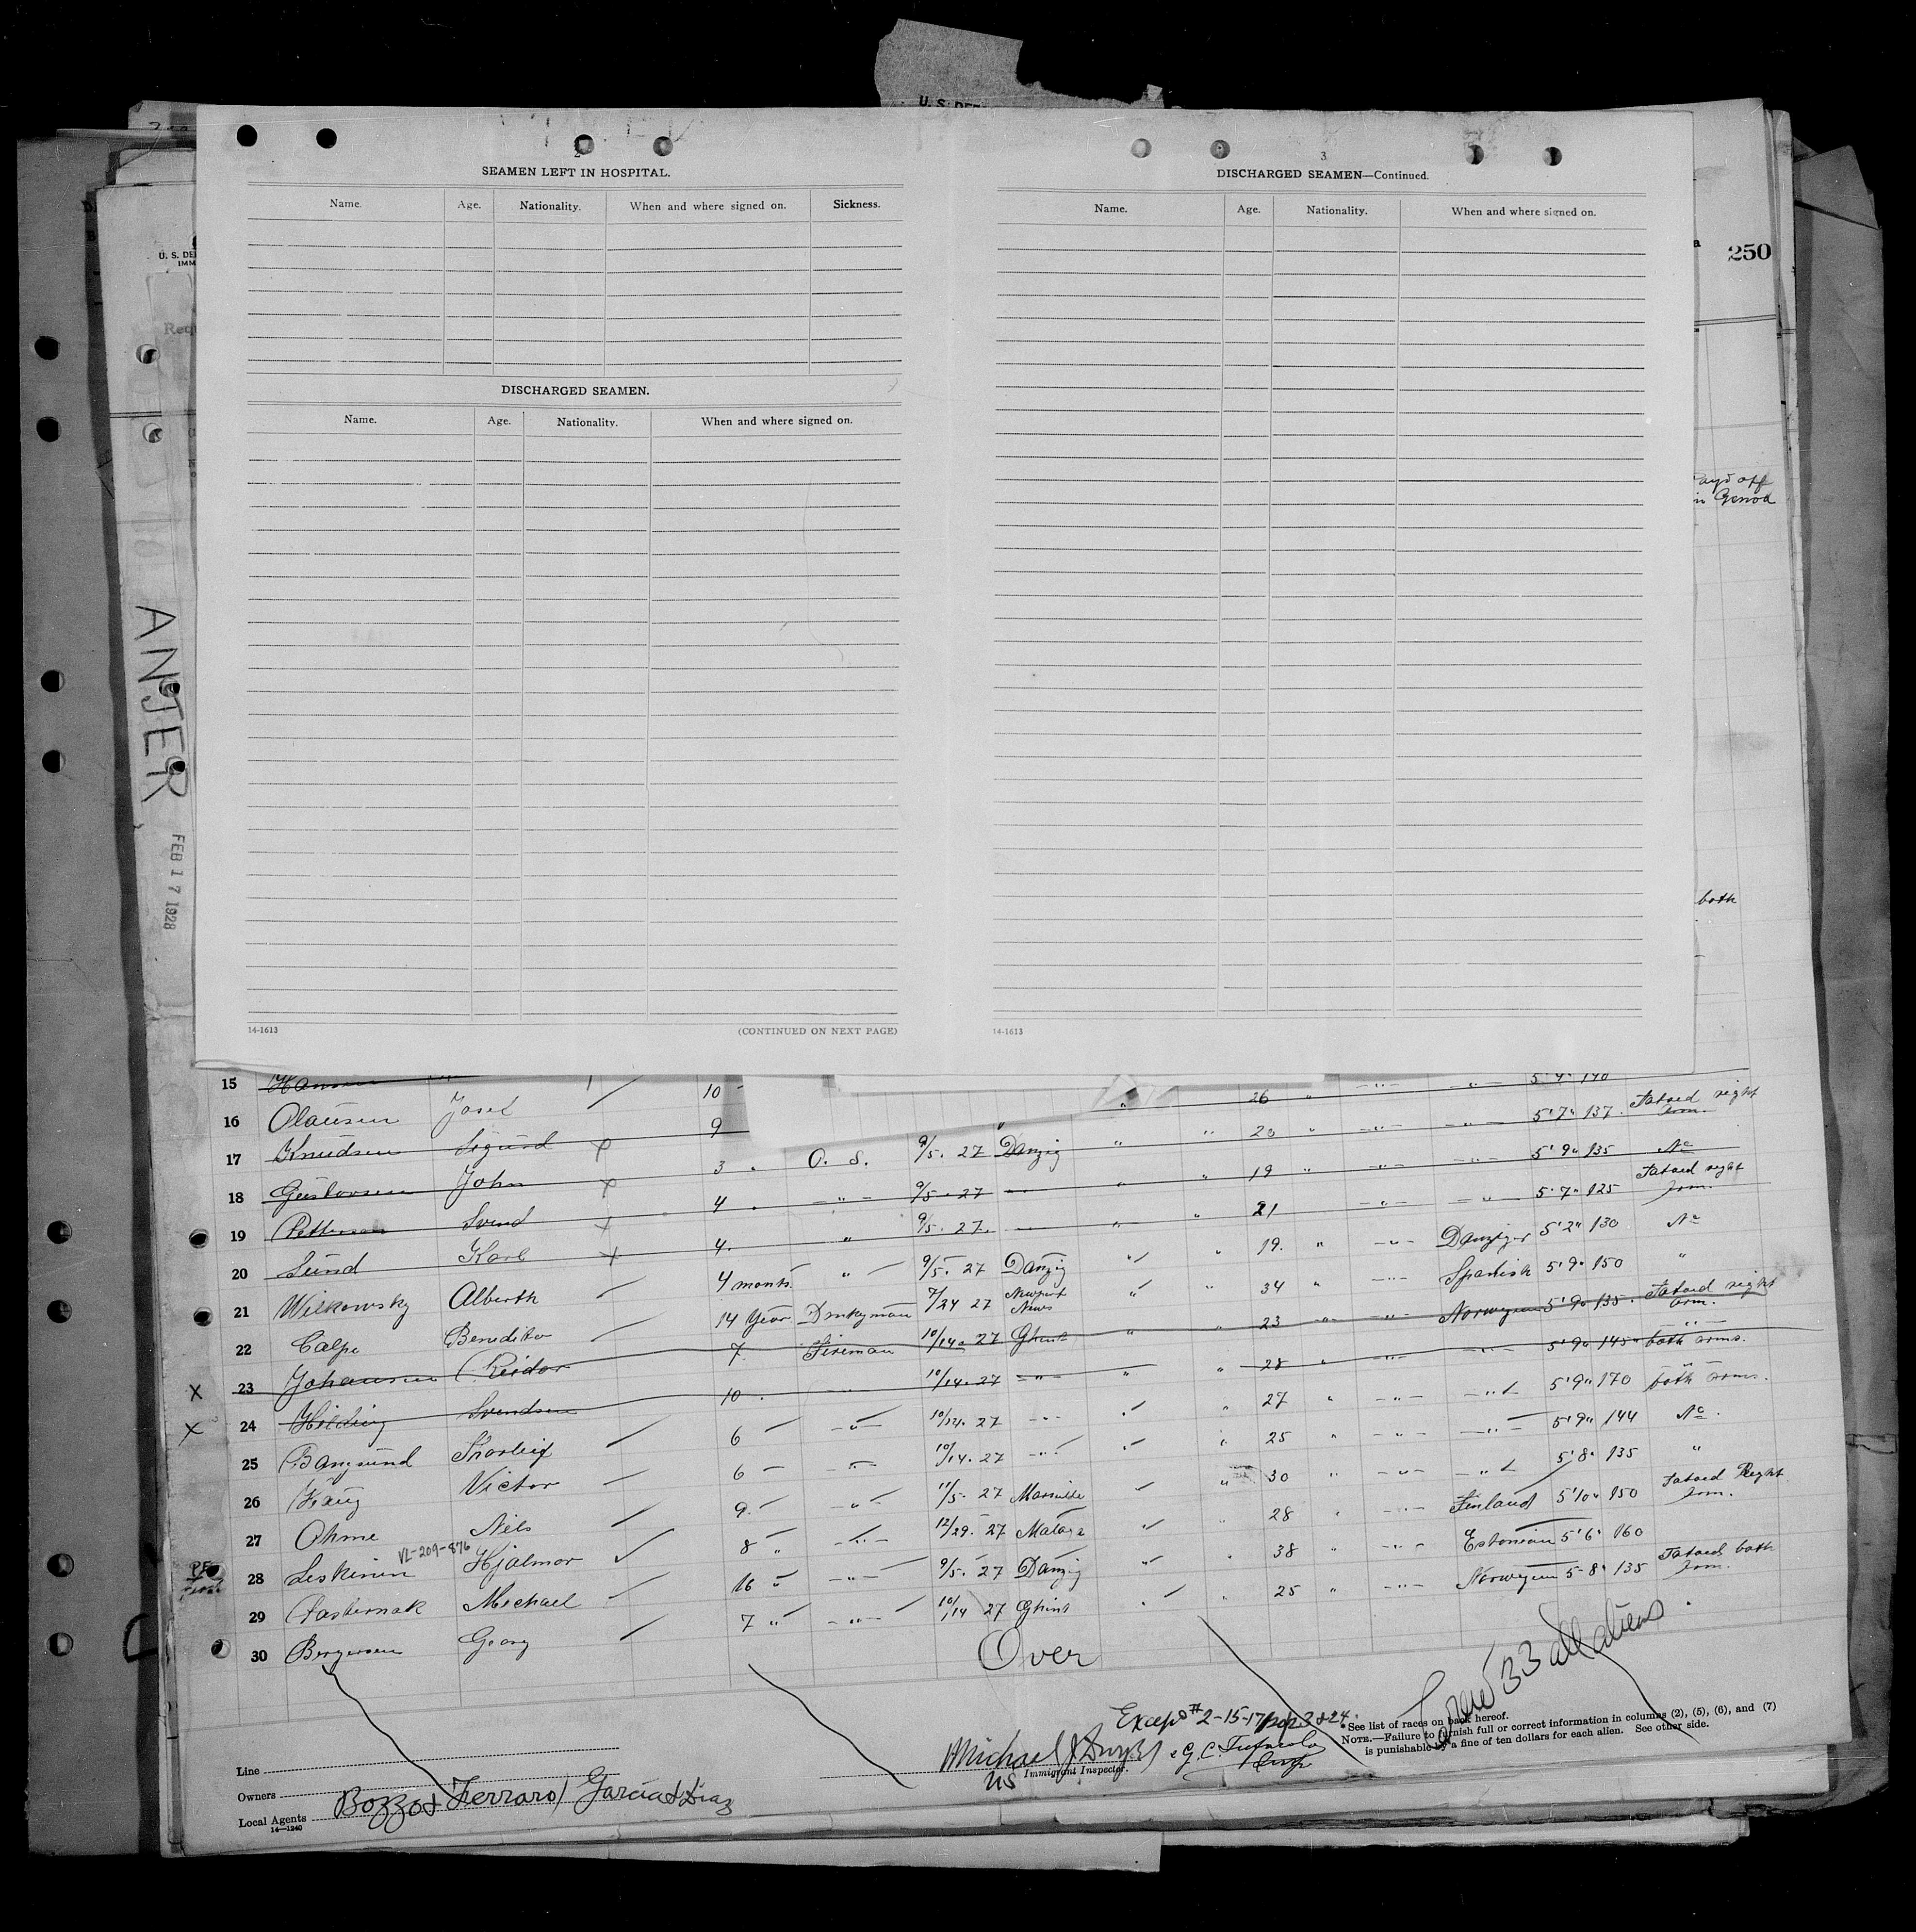 U. S. DEP
U. S. DEP
IMM
Requ
250
Payd off
in Genoa
both
ANJER
FEB 17 1928
2
SEAMEN LEFT IN HOSPITAL.
Name. Age. Nationality. When and where signed on. Sickness.
DISCHARGED SEAMEN.
Name. Age. Nationality. When and where signed on.
14-1613 (CONTINUED ON NEXT PAGE)
3
DISCHARGED SEAMEN—Continued.
Name. Age. Nationality. When and where signed on.
14-1613
15 Hansen 10 26 " -"- -"- 5'4" 140
16 Olausen Josef 9 " " 20 " -"- -"- 5'7" 137 Tatoed right arm.
17 Knudsen Sigurd x 3 " O. S. 9/5. 27 Danzig " " 19 " -"- -"- 5'9" 135 No
18 Gustavsen John x 4 " -"- 9/5. 27 " " 21 -"- -"- 5'7" 125 Tatoed right arm.
19 Pettersen Svend x 4. " 9/5. 27. " " 19. " -"- Danziger 5'2" 130 No
20 Lund Karl x 4 month. " 9/5. 27 Danzig " " 34 -"- Spanish 5'9" 150 "
21 Wilkowsky Alberth 14 Year Donkyman 7/24 27 Newport News " " 23 -"- -"- Norwegian 5'9" 135. Tatoed right arm.
22 Calpe Benedito 7. Fireman 10/14. 27 Ghent " " 28 " -"- -"- 5'9" 145 " both arms.
X 23 Johansen Reidar 10. -"- 10/14. 27 -"- " " 27 " -"- -"- 5'9" 170 both arms.
X 24 Hilding Svendsen 6 -"- 10/14. 27 -"- " 25 " -"- -"- 5'9" 144 No.
25 Bangsund Thorleif 6 -"- 10/14. 27 -"- " 30 " -"- -"- 5'8" 135 "
26 Haug Victor 9. -"- 11/5. 27 Marseille " 28 " -"- Finland 5'10" 150 Tatoed Right arm.
27 Ohme Nils 8 " -"- 12/29. 27 Malaga " " 38 " -"- Estonian 5'6" 160
VL-209-876
28 Leskinin Hjalmar 16 " -"- 9/5. 27 Danzig " " 25 " -"- Norwegian 5-8" 135 Tatoed both arm.
29 Pasternak Michael 7 " -"- 10/14 27 Ghent
30 Bergersen Georg
Over
Crew 33 all aliens.
Except # 2-15-17
Line
Owners
Local Agents Bozzo & Ferraro / Garcia & Diaz
14—1240
Michael J Dwyer
US Immigrant Inspector.
See list of races on back hereof.
NOTE.—Failure to furnish full or correct information in columns (2), (5), (6), and (7)
is punishable by a fine of ten dollars for each alien. See other side.